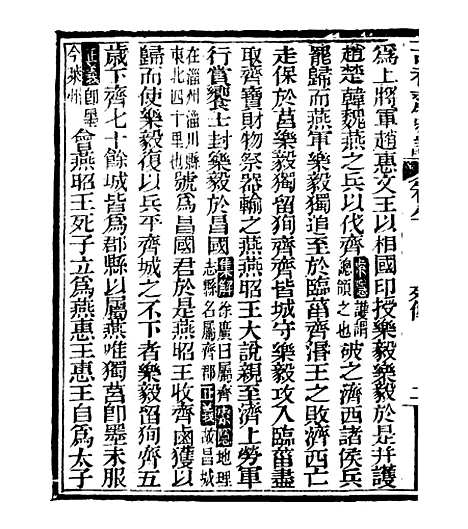 爲上將軍趙惠文王以相國印授樂毅樂毅於是并護
趙楚韓魏燕之兵以伐齊索隱護謂總領之也破之濟西諸侯兵
罷歸而燕軍樂毅獨追至於臨菑齊湣王之敗濟西亡
走保於莒樂毅獨留徇齊齊皆城守樂毅攻入臨菑盡
取齊寶財物祭器輸之燕燕昭王大說親至濟上勞軍
行賞饗士封樂毅於昌國集解徐廣曰屬齊索隱地理志縣名屬齊郡正義故昌城
在淄州淄川縣東北四十里也號爲昌國君於是燕昭王收齊鹵獲以
歸而使樂毅復以兵平齊城之不下者樂毅留徇齊五
歲下齊七十餘城皆爲郡縣以屬燕唯獨莒即墨未服
正義即墨今萊州會燕昭王死子立爲燕惠王惠王自爲太子